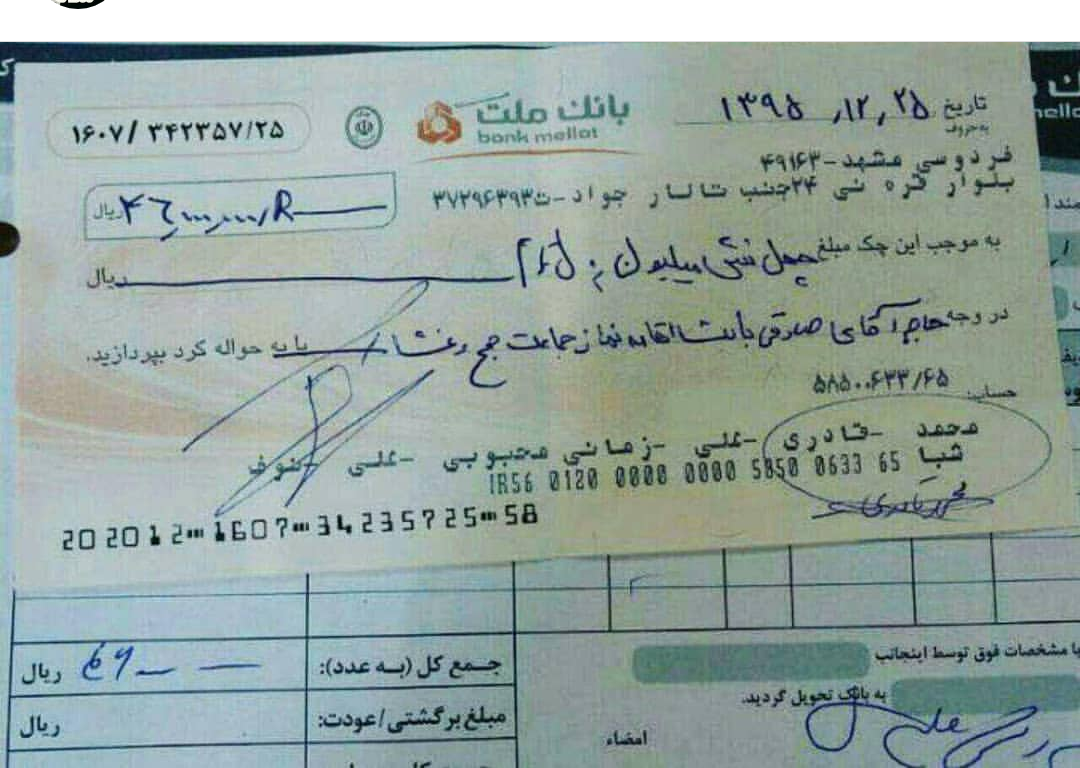 تاریخ ۱۳۹۵,۱۲,۲۵
به‌حروف
بانک ملت
bank mellat
۱۶۰۷/ ۳۴۲۳۵۷/۲۵
فردوسی مشهد-۴۹۱۶۳
بلوار قره نی ۲۴جنب تالار جواد-ت۳۷۲۹۶۳۹۳
ریال
به موجب این چک مبلغ چهل شش میلیون ریال
در وجه حاج آقای صدوقی بابت اقامه نماز جماعت صبح و عشا یا به حواله کرد بپردازید.
حساب: ۵۸۵۰۰۶۳۳/۶۵
محمد -قادری -علی -زمانی محبوبی -علی -نوف
شبا IR56 0120 0000 0000 5850 0633 65
20 2012 1607 34235725 58
جمع کل (به عدد): ریال
مبلغ برگشتی/عودت: ریال
با مشخصات فوق توسط اینجانب
به بانک تحویل گردید.
امضاء